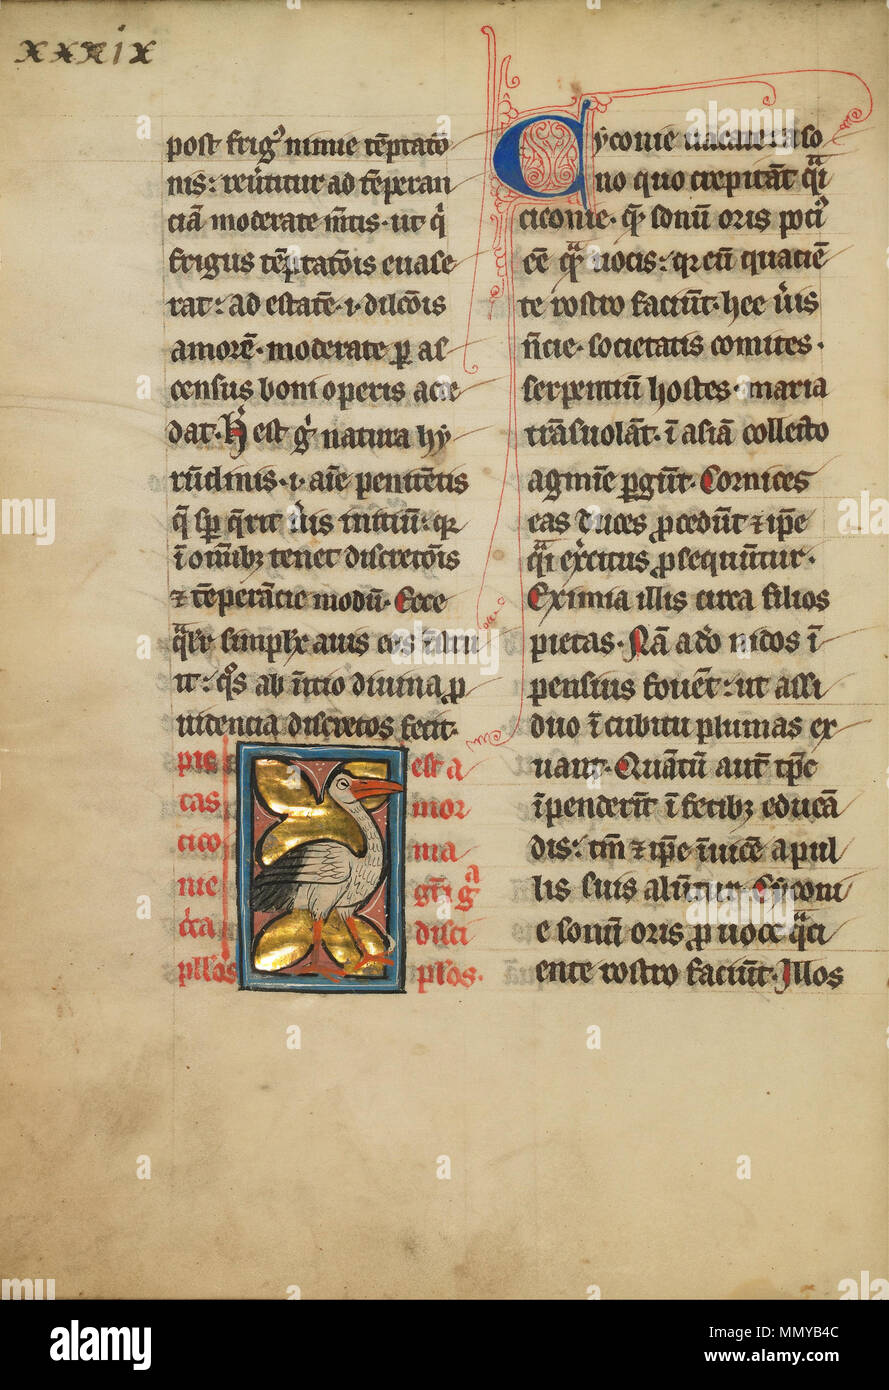 xxxix
post frigꝰ nimie tēptatō
nis: reūtitur ad tēperan
ciā moderate m̄tis. ut q̇
frigus tēptatōis euase
rat: ad estatē .i. dilcōis
amorē. moderate ꝑ as
census boni operis acce
dat. Ḣ est ġ natura hy
rūdinis .i. aīe penitētis
q̄ sꝑ q̄rit ū̇is initiū: qꝛ
ī om̄ibꝫ tenet discretōis
⁊ tēperācie modū. Ecce
simplex auis eos
it: qͦs ab īitio diuina ꝓ
uidencia discretos fecit.
pie est a
tas mor
cico nia
nie
cī̇ca disci
pllōs plōs.
Cyconie uacate in so
no quo crepitāt qͣi
ciconie. qͥ sonū oris pocꝰ
eē qͣ uocis: qꝛ eū quacien
te rostro faciūt. hee ūis
n̄cie. societatis comites.
serpentiū hostes. maria
trāsuolāt. ī asiā collecto
agmīe ꝑgūt. Cornices
eas duces ꝓcedūt ⁊ ip̄e
qͣi exͦcitus ꝓsequūtur.
Eximia illis circa filios
pietas. Nā adͦo nidos ī
pensius fouēt: ut assi
duo īcubitu plumas ex
uant. Quātū aut tp̄e
īpenderīt ī fetibꝫ educā
dis: tm̄ ⁊ ip̄e īuicē a pul
lis suis alūtur. Cyconi
e sonū oris ꝓ uoce qͣci
ente rostro faciūt. Illos
alamy
a
Image ID: MMYB4C
www.alamy.com